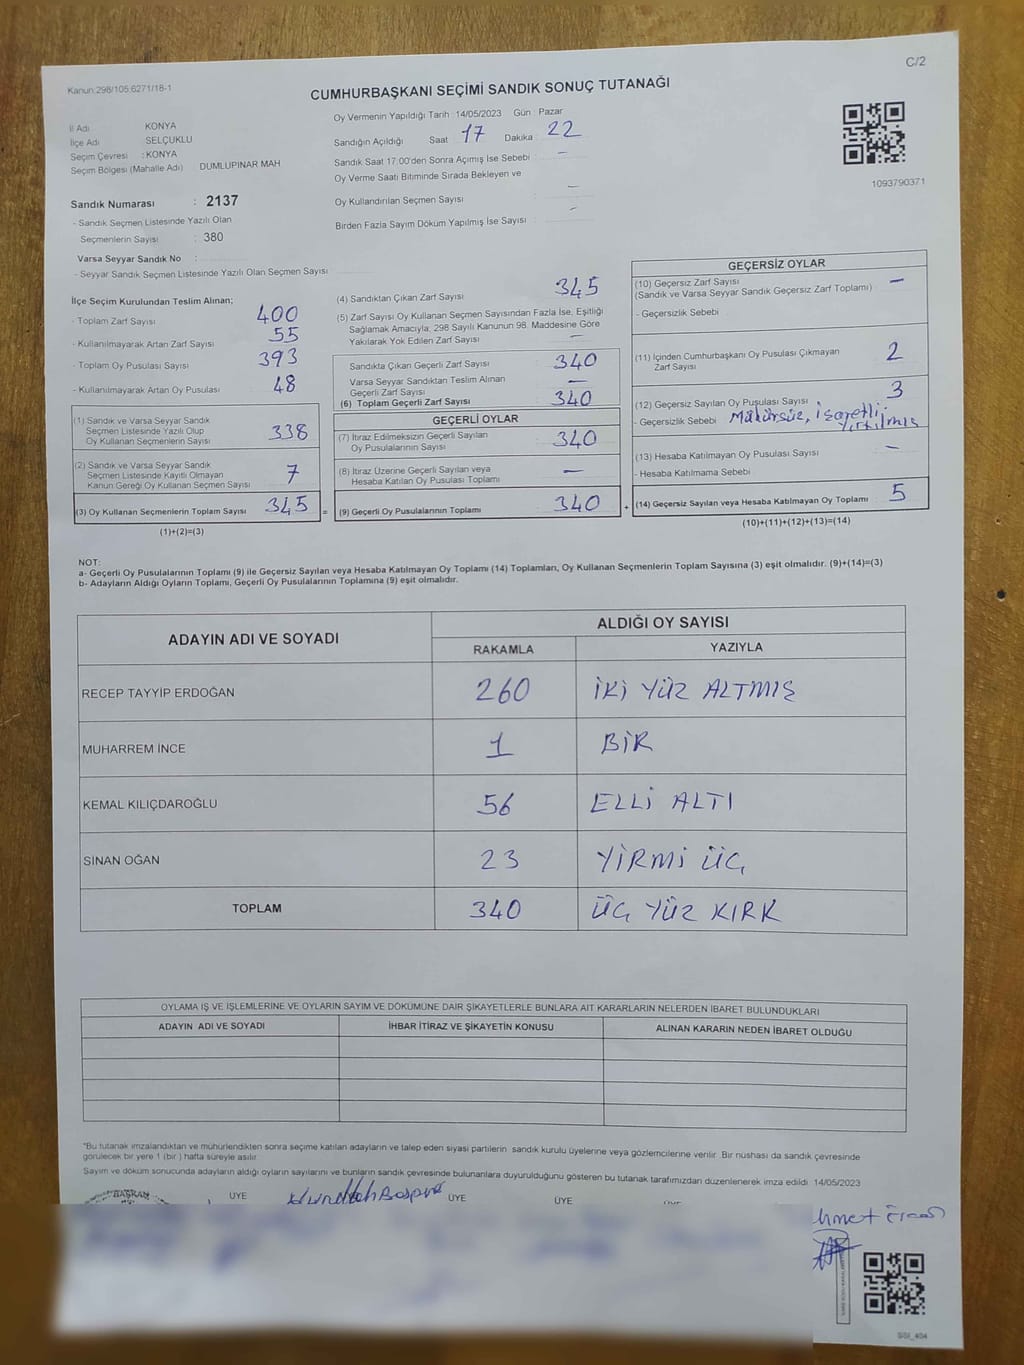 C/2
Kanun:298/105.6271/18-1
CUMHURBAŞKANI SEÇİMİ SANDIK SONUÇ TUTANAĞI
İl Adı KONYA
İlçe Adı SELÇUKLU
Seçim Çevresi : KONYA
Seçim Bölgesi (Mahalle Adı) DUMLUPINAR MAH
Sandık Numarası : 2137
- Sandık Seçmen Listesinde Yazılı Olan
Seçmenlerin Sayısı : 380
Varsa Seyyar Sandık No :
- Seyyar Sandık Seçmen Listesinde Yazılı Olan Seçmen Sayısı
Oy Vermenin Yapıldığı Tarih 14/05/2023 Gün : Pazar
Sandığın Açıldığı Saat 17 Dakika : 22
Sandık Saat 17:00'den Sonra Açımış İse Sebebi : —
Oy Verme Saati Bitiminde Sırada Bekleyen ve
Oy Kullandırılan Seçmen Sayısı : —
Birden Fazla Sayım Döküm Yapılmış İse Sayısı : —
1093790371
İlçe Seçim Kurulundan Teslim Alınan;
- Toplam Zarf Sayısı 400
- Kullanılmayarak Artan Zarf Sayısı 55
- Toplam Oy Pusulası Sayısı 393
- Kullanılmayarak Artan Oy Pusulası 48
(1) Sandık ve Varsa Seyyar Sandık
Seçmen Listesinde Yazılı Olup
Oy Kullanan Seçmenlerin Sayısı 338
(2) Sandık ve Varsa Seyyar Sandık
Seçmen Listesinde Kayıtlı Olmayan
Kanun Gereği Oy Kullanan Seçmen Sayısı 7
(3) Oy Kullanan Seçmenlerin Toplam Sayısı 345 =
(1)+(2)=(3)
(4) Sandıktan Çıkan Zarf Sayısı 345
(5) Zarf Sayısı Oy Kullanan Seçmen Sayısından Fazla İse, Eşitliği
Sağlamak Amacıyla; 298 Sayılı Kanunun 98. Maddesine Göre
Yakılarak Yok Edilen Zarf Sayısı —
Sandıkta Çıkan Geçerli Zarf Sayısı 340
Varsa Seyyar Sandıktan Teslim Alınan
Geçerli Zarf Sayısı —
(6) Toplam Geçerli Zarf Sayısı 340
GEÇERLİ OYLAR
(7) İtiraz Edilmeksizin Geçerli Sayılan
Oy Pusulalarının Sayısı 340
(8) İtiraz Üzerine Geçerli Sayılan veya
Hesaba Katılan Oy Pusulası Toplamı —
(9) Geçerli Oy Pusulalarının Toplamı 340 +
GEÇERSİZ OYLAR
(10) Geçersiz Zarf Sayısı —
(Sandık ve Varsa Seyyar Sandık Geçersiz Zarf Toplamı)
- Geçersizlik Sebebi
(11) İçinden Cumhurbaşkanı Oy Pusulası Çıkmayan
Zarf Sayısı 2
(12) Geçersiz Sayılan Oy Pusulası Sayısı 3
- Geçersizlik Sebebi Mühürsüz, İşaretli, Yırtılmış
(13) Hesaba Katılmayan Oy Pusulası Sayısı —
- Hesaba Katılmama Sebebi
(14) Geçersiz Sayılan veya Hesaba Katılmayan Oy Toplamı 5
(10)+(11)+(12)+(13)=(14)
NOT:
a- Geçerli Oy Pusulalarının Toplamı (9) ile Geçersiz Sayılan veya Hesaba Katılmayan Oy Toplamı (14) Toplamları, Oy Kullanan Seçmenlerin Toplam Sayısına (3) eşit olmalıdır. (9)+(14)=(3)
b- Adayların Aldığı Oyların Toplamı, Geçerli Oy Pusulalarının Toplamına (9) eşit olmalıdır.
ADAYIN ADI VE SOYADI ALDIĞI OY SAYISI
RAKAMLA YAZIYLA
RECEP TAYYİP ERDOĞAN 260 İKİ YÜZ ALTMIŞ
MUHARREM İNCE 1 BİR
KEMAL KILIÇDAROĞLU 56 ELLİ ALTI
SİNAN OĞAN 23 YİRMİ ÜÇ
TOPLAM 340 ÜÇ YÜZ KIRK
OYLAMA İŞ VE İŞLEMLERİNE VE OYLARIN SAYIM VE DÖKÜMÜNE DAİR ŞİKAYETLERLE BUNLARA AİT KARARLARIN NELERDEN İBARET BULUNDUKLARI
ADAYIN ADI VE SOYADI İHBAR İTİRAZ VE ŞİKAYETİN KONUSU ALINAN KARARIN NEDEN İBARET OLDUĞU
*Bu tutanak imzalandıktan ve mühürlendikten sonra seçime katılan adayların ve talep eden siyasi partilerin sandık kurulu üyelerine veya gözlemcilerine verilir. Bir nüshası da sandık çevresinde
görülecek bir yere 1 (bir ) hafta süreyle asılır.
Sayım ve döküm sonucunda adayların aldığı oyların sayılarını ve bunların sandık çevresinde bulunanlara duyurulduğunu gösteren bu tutanak tarafımızdan düzenlenerek imza edildi. 14/05/2023
BAŞKAN ÜYE ÜYE ÜYE
SSI_404